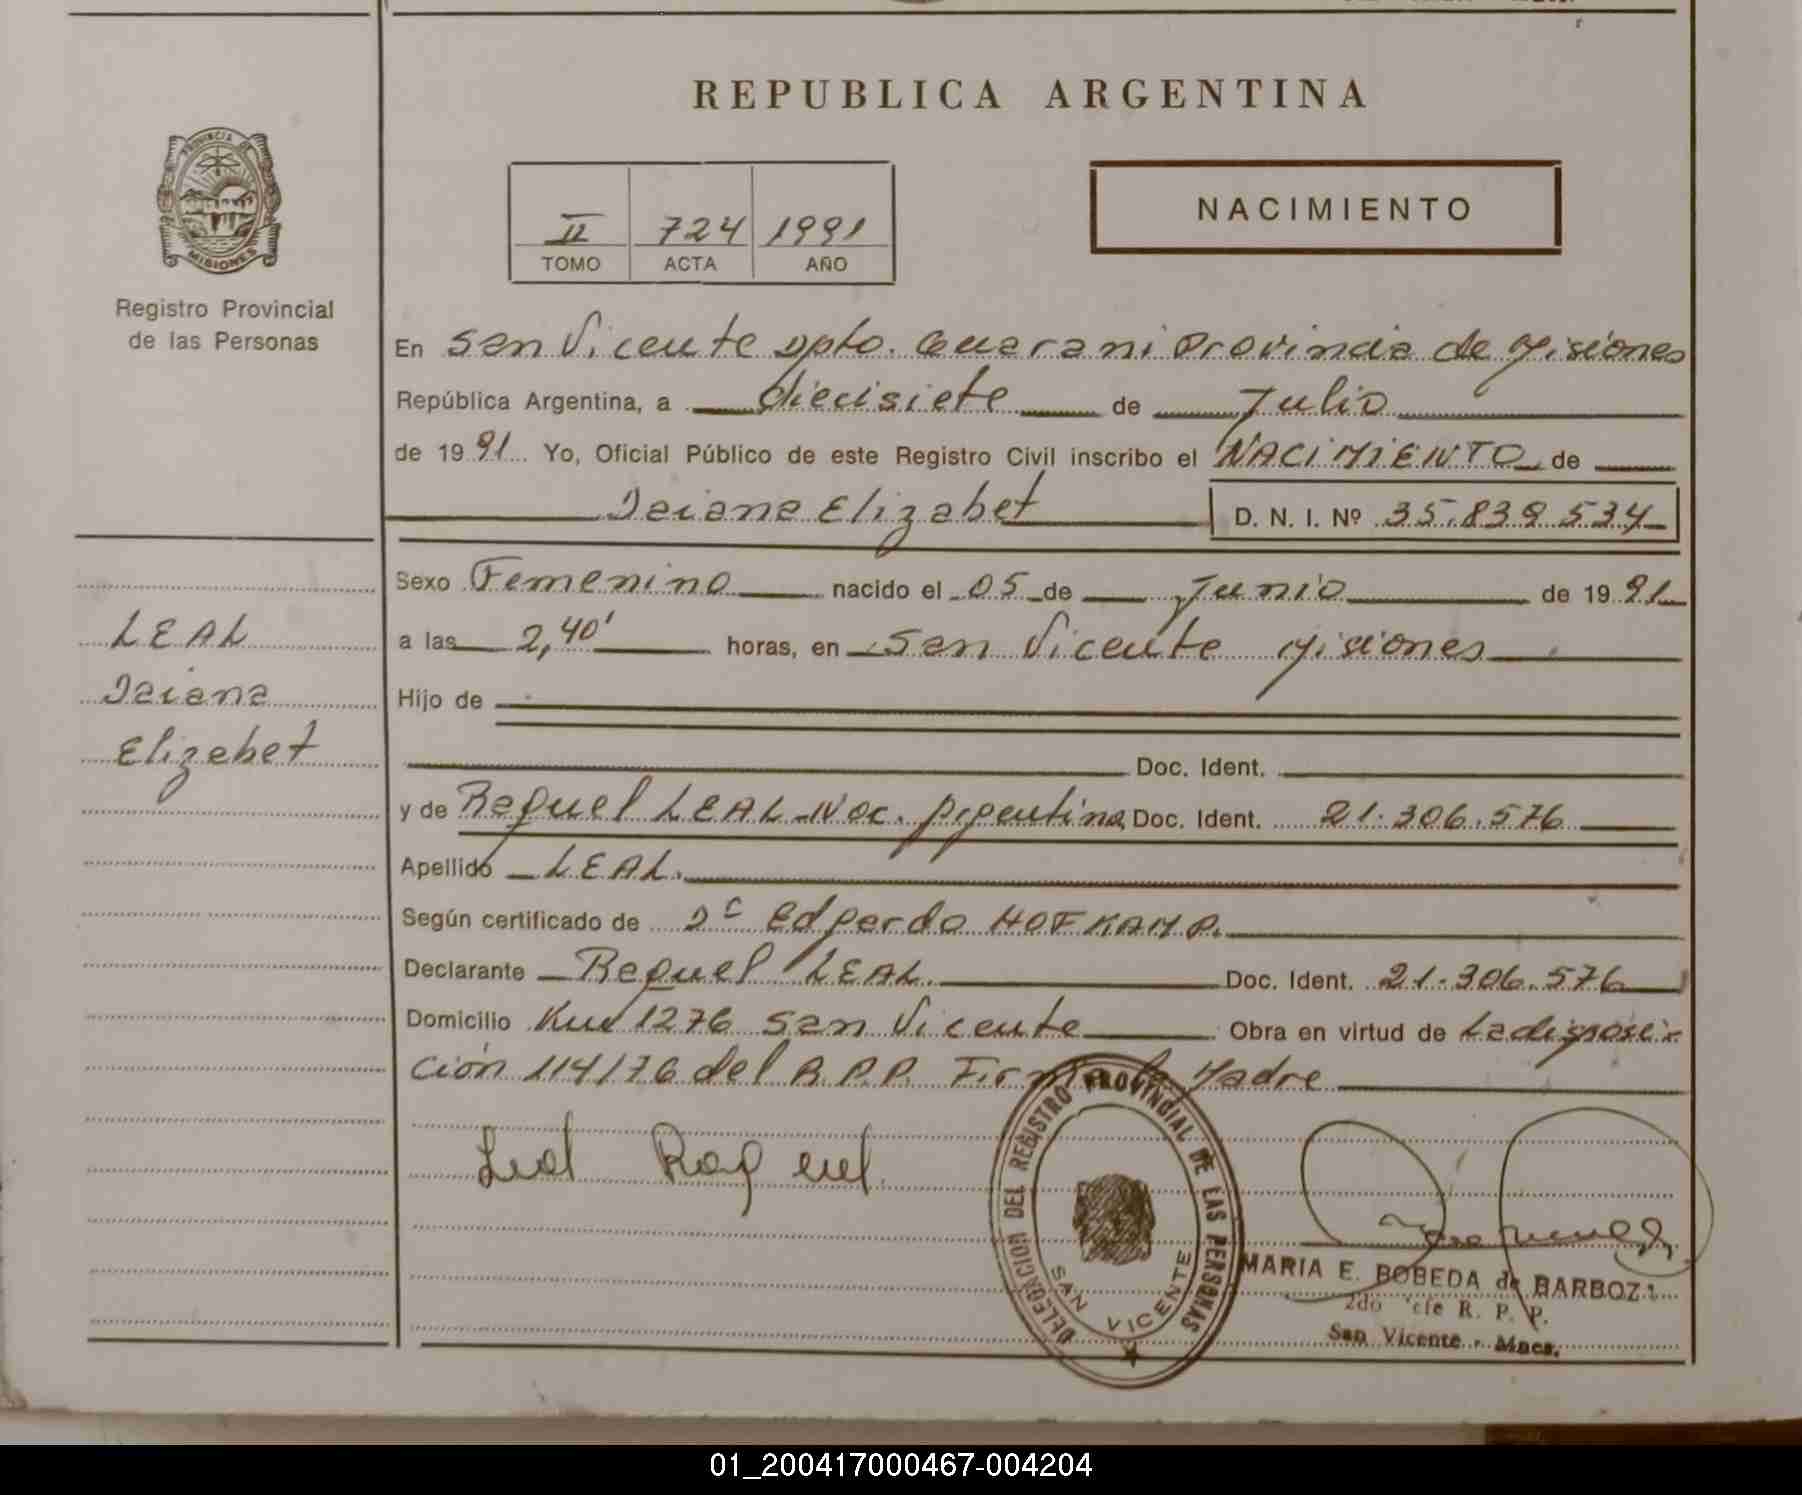 REPUBLICA ARGENTINA
PROVINCIA DE
MISIONES
Registro Provincial
de las Personas
II 724 1991
TOMO ACTA AÑO
NACIMIENTO
En San Vicente Dpto. Guarani Provincia de Misiones
República Argentina, a diecisiete de Julio
de 1991 Yo, Oficial Público de este Registro Civil inscribo el NACIMIENTO de
Daiana Elizabet D. N. I. Nº 35.839.534
Sexo Femenino nacido el 05 de Junio de 1991
a las 2,40' horas, en San Vicente Misiones
Hijo de
Doc. Ident.
y de Raquel LEAL - Nac. Argentina Doc. Ident. 21.306.576
Apellido LEAL.
Según certificado de Dr Edgardo HOFKAMP.
Declarante Raquel LEAL. Doc. Ident. 21.306.576
Domicilio Km 1276 San Vicente Obra en virtud de La disposi-
ción 114/76 del R.P.P. Firma la Madre
LEAL
Daiana
Elizabet
Leal Raquel
DELEGACION DEL REGISTRO PROVINCIAL DE LAS PERSONAS
SAN VICENTE
MARIA E. BOBEDA de BARBOZA
2do R. P. P.
San Vicente - Mnes.
01_200417000467-004204